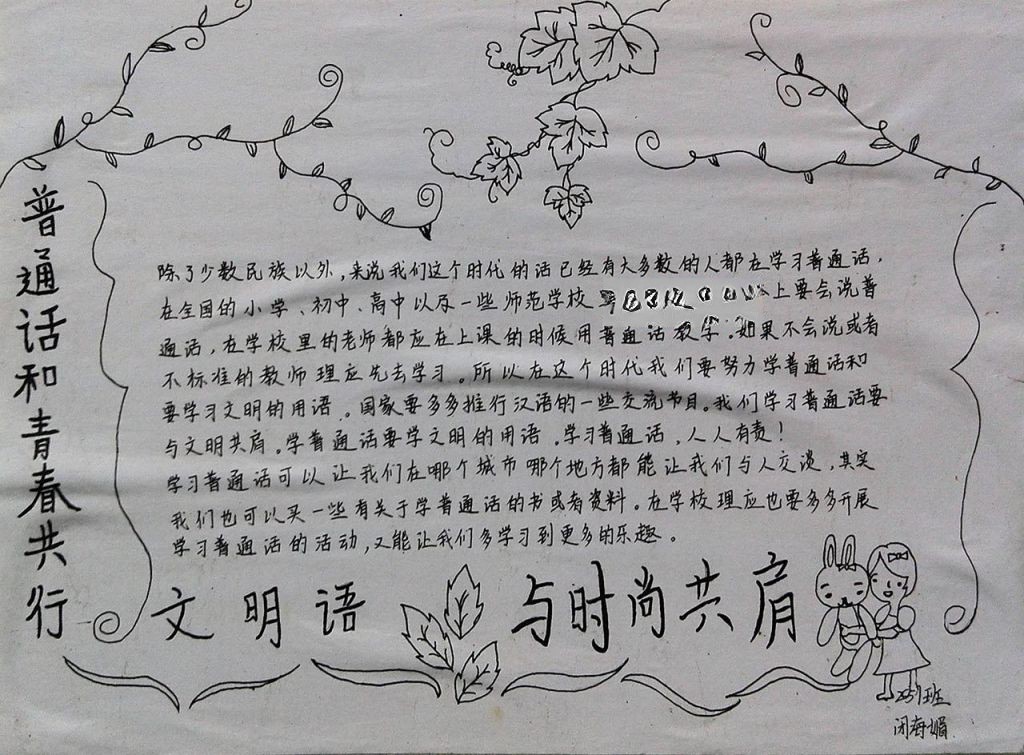 普通话和青春共行
除了少数民族以外，来说我们这个时代的话已经有大多数的人都在学习普通话，
在全国的小学、初中、高中以及一些师范学校上要会说普
通话，在学校里的老师都应在上课的时候用普通话教学。如果不会说或者
不标准的教师理应先去学习。所以在这个时代我们要努力学普通话和
要学习文明的用语。国家要多多推行汉语的一些交流节目。我们学习普通话要
与文明共肩。学普通话要学文明的用语。学习普通话，人人有责！
学习普通话可以让我们在哪个城市哪个地方都能让我们与人交谈，其实
我们也可以买一些有关于学普通话的书或者资料。在学校理应也要多多开展
学习普通话的活动，又能让我们多学习到更多的乐趣。
文明语 与时尚共肩
班
闭海媚